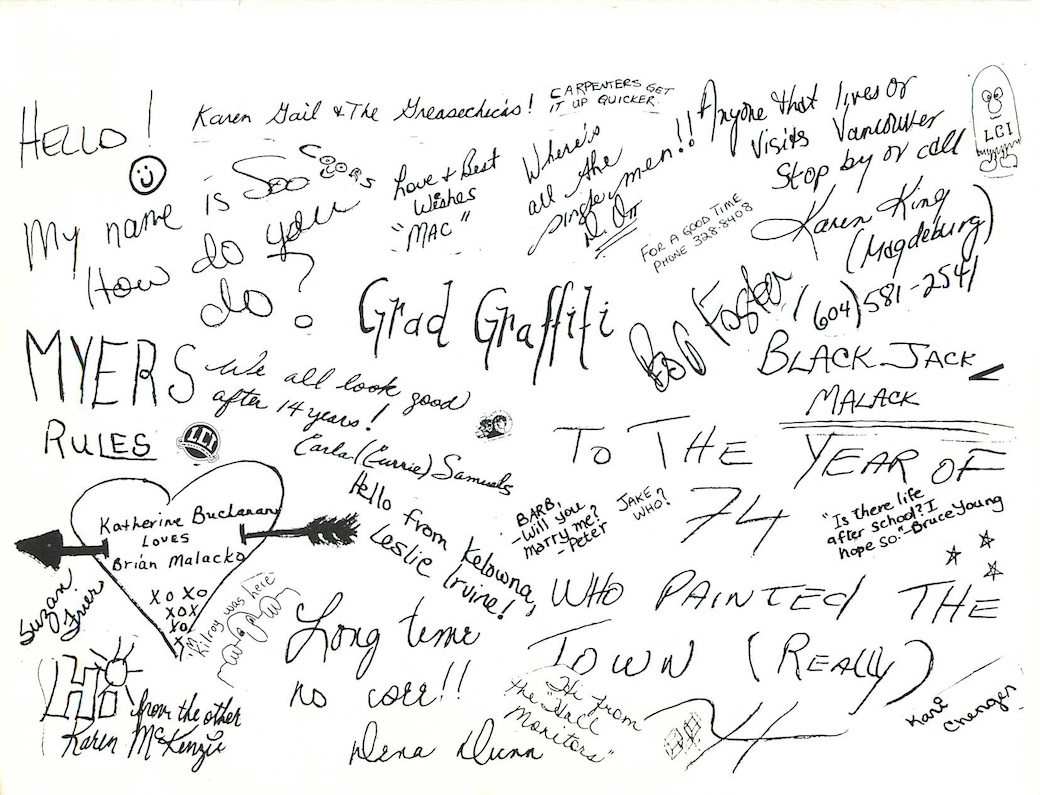 HELLO!
My name is Soo Coons
How do you
do?
Karen Gail & The Greasechicas!
CARPENTERS GET
IT UP QUICKER.
Love & Best
Wishes
"MAC"
Where's
all the
single men!!
D. Ott
Anyone that lives or
Visits Vancouver
Stop by or call
Karen King
(Magdeburg)
(604) 581-2541
LCI
FOR A GOOD TIME
PHONE 328-8408
Grad Graffiti
Bob Foster
BLACK JACK
MALACK
MYERS
RULES
We all look good
after 14 years!
Carla (Currie) Samuels
LCI
TO THE YEAR OF
74
WHO PAINTED THE
TOWN (REALLY)
74
Hello from Kelowna,
Leslie Irvine!
BARB,
-Will you
marry me?
-Peter
JAKE?
WHO?
"Is there life
after school? I
hope so."-Bruce Young
Katherine Buchanan
LOVES
Brian Malacko
XO XO
XOX
XO
X
Suzan
Frier
"Kilroy was here
Long time
no coer!!
Dena Dunn
Hi from
the "Hall
Monitors"
Hi from the other
Karen McKenzie
Karl